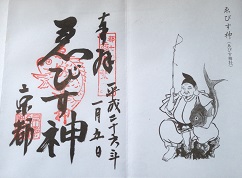 奉拝
平成二十六年
一月五日
ゑびす神
京都
ゑびす神